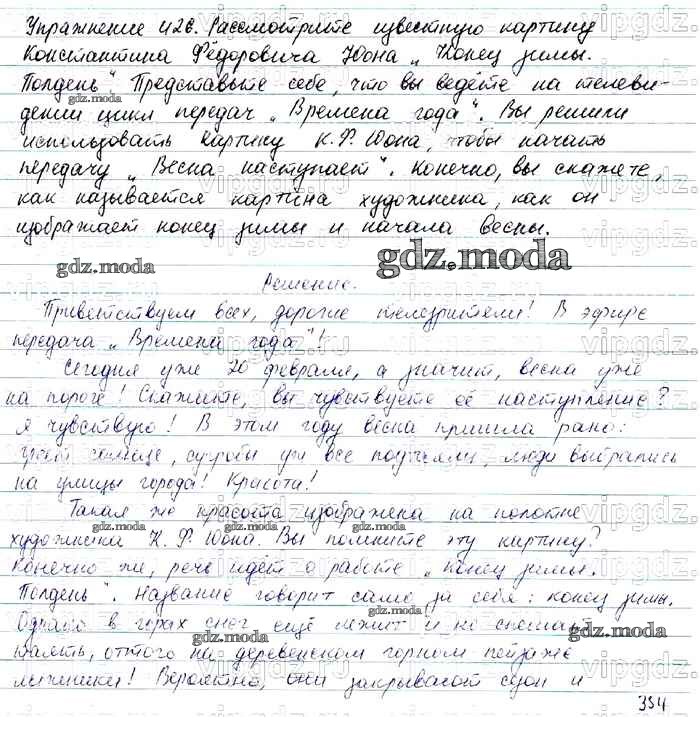 Упражнение 426. Рассмотрите известную картину
Константина Фёдоровича Юона „Конец зимы.
Полдень". Представьте себе, что вы ведёте на телеви-
дении цикл передач „Времена года". Вы решили
использовать картину К. Ф. Юона, чтобы начать
передачу „Весна наступает". Конечно, вы скажете,
как называется картина художника, как он
изображает конец зимы и начала весны.
Решение.
Приветствуем всех, дорогие телезрители! В эфире
передача „Времена года"!
Сегодня уже 20 февраля, а значит, весна уже
на пороге! Скажите, вы чувствуете её наступление?
Я чувствую! В этом году весна пришла рано:
греет солнце, сугробы уж все подтаяли, люди выбрались
на улицы города! Красота!
Такая же красота изображена на полотне
художника К. Ф. Юона. Вы помните эту картину?
Конечно же, речь идёт о работе „Конец зимы.
Полдень". Название говорит само за себя: конец зимы.
Однако в горах снег ещё лежит и не спешит
таять, оттого на деревенском горном пейзаже
лыжники! Вероятно, они закрывают сезон и
354
gdz.moda
vipgdz.ru